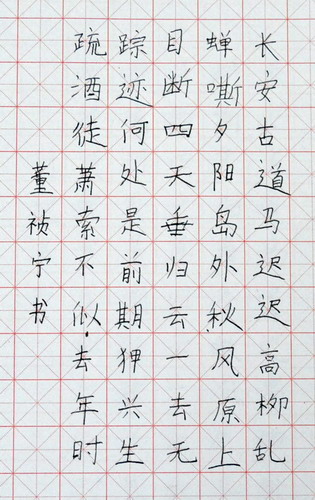 长安古道马迟迟高柳乱
蝉嘶夕阳岛外秋风原上
目断四天垂归云一去无
踪迹何处是前期狎兴生
疏酒徒萧索不似去年时
董祯宁书